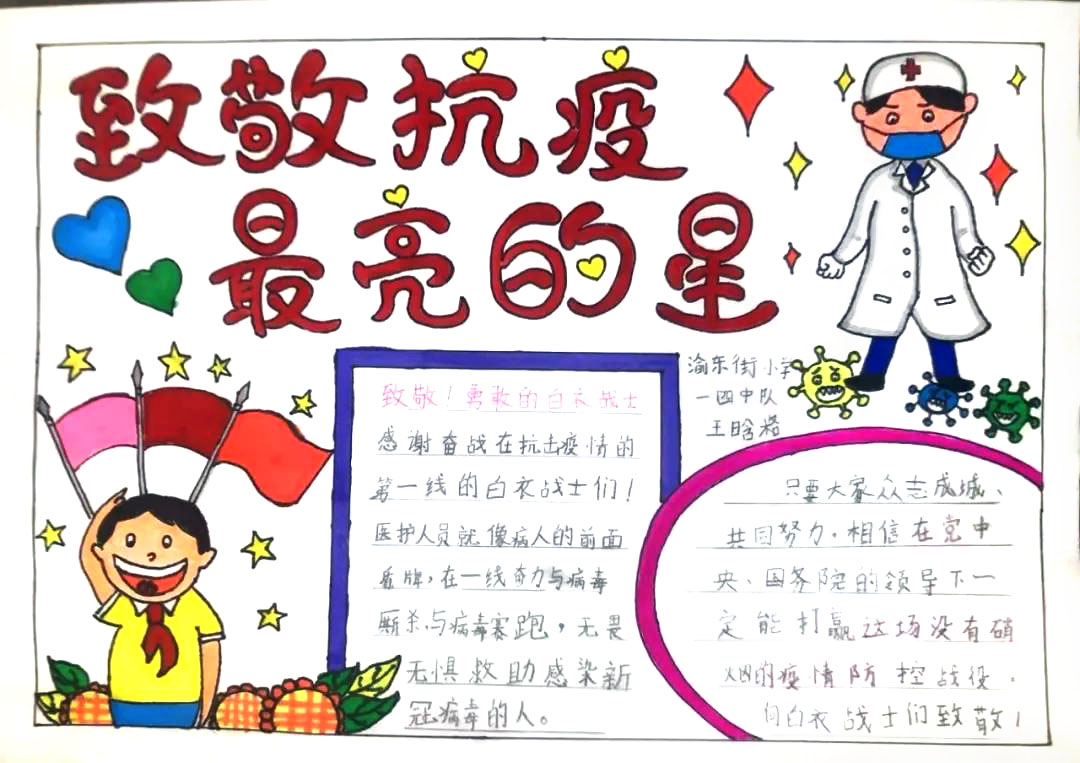 致敬抗疫
最亮的星
渝东街小学
一四中队
王晗
致敬！勇敢的白衣战士
感谢奋战在抗击疫情的
第一线的白衣战士们！
医护人员就像病人的前面
盾牌，在一线奋力与病毒
厮杀，与病毒赛跑，无畏
无惧救助感染新
冠病毒的人。
只要大家众志成城、
共同努力，相信在党中
央、国务院的领导下一
定能打赢这场没有硝
烟的疫情防控战役。
向白衣战士们致敬！